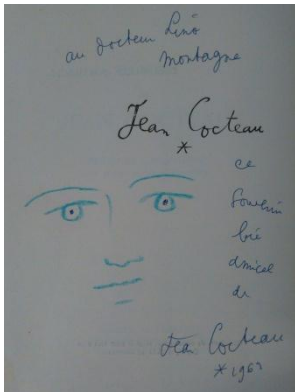 au docteur
montagne
Jean Cocteau
*
ce
souvenir
très
amical
de
Jean Cocteau
*